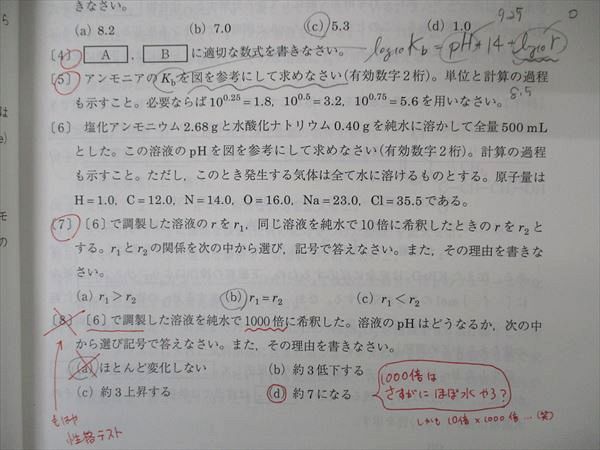 きなさい。
(a) 8.2 (b) 7.0 (c) 5.3 (d) 1.0
9.25
〔4〕 A , B に適切な数式を書きなさい。
log10 Kb = pH + 14 + log10 r
〔5〕 アンモニアの Kb を図を参考にして求めなさい(有効数字2桁)。単位と計算の過程
も示すこと。必要ならば 10^0.25=1.8, 10^0.5=3.2, 10^0.75=5.6 を用いなさい。
8.5
〔6〕 塩化アンモニウム 2.68g と水酸化ナトリウム 0.40g を純水に溶かして全量 500 mL
とした。この溶液の pH を図を参考にして求めなさい(有効数字2桁)。計算の過程
も示すこと。ただし,このとき発生する気体は全て水に溶けるものとする。原子量は
H=1.0, C=12.0, N=14.0, O=16.0, Na=23.0, Cl=35.5 である。
〔7〕 〔6〕で調製した溶液の r を r1,同じ溶液を純水で10倍に希釈したときの r を r2 と
する。r1 と r2 の関係を次の中から選び,記号で答えなさい。また,その理由を書きな
さい。
(a) r1>r2 (b) r1=r2 (c) r1<r2
〔8〕 〔6〕で調製した溶液を純水で1000倍に希釈した。溶液の pH はどうなるか,次の中
から選び記号で答えなさい。また,その理由を書きなさい。
(a) ほとんど変化しない (b) 約3低下する
(c) 約3上昇する (d) 約7になる
1000倍は
さすがに ほぼ水やろ?
しかも 10倍×1000倍…(笑)
もはや
性格テスト